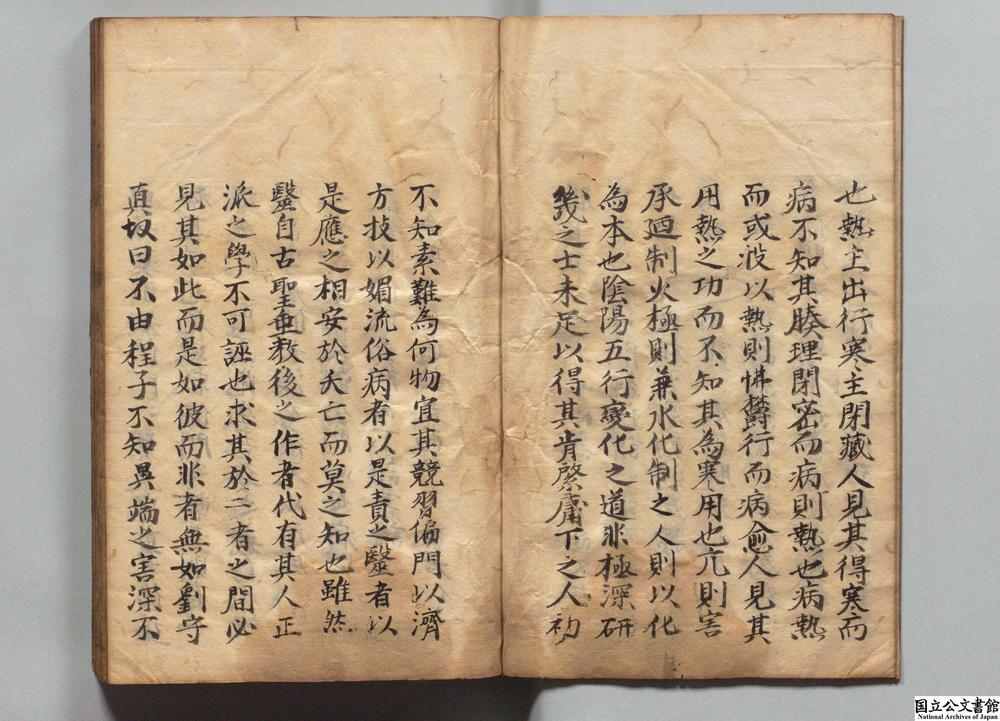 也熱主出行寒主閉藏人見其得寒而
病不知其腠理閉密而病則熱也病熱
而或汲以熱則怫欝行而病愈人見其
用熱之功而不知其為寒用也亢則害
承廼制火極則兼水化制之人則以化
為本也陰陽五行變化之道非極深研
幾之士未足以得其肯綮庸下之人初
不知素難為何物宜其競習偏門以濟
方技以媚流俗病者以是責之毉者以
是應之相安於夭亡而莫之知也雖然
毉自古聖垂教後之作者代有其人正
派之學不可誣也求其於二者之間必
見其如此而是如彼而非者無如劉守
真故曰不由程子不知異端之害深不
国立公文書館
National Archives of Japan